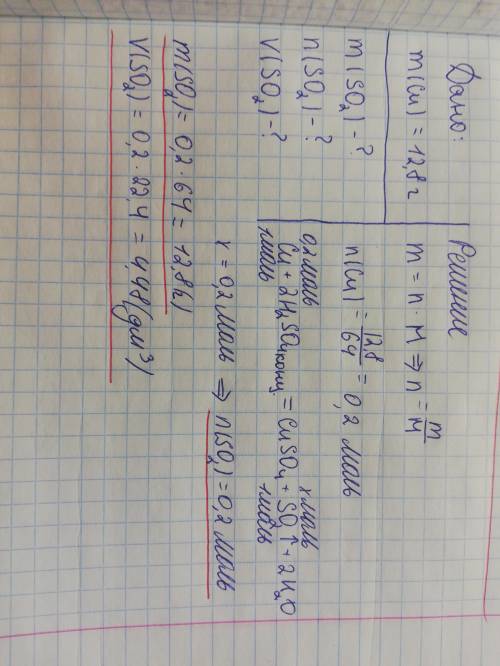 Дано:
m(Cu) = 12,8 г
m(SO₂) - ?
n(SO₂) - ?
V(SO₂) - ?
Решение
m = n · M ⇒ n = m/M
n(Cu) = 12,8/64 = 0,2 моль
0,2 моль x моль
Cu + 2H₂SO₄ конц. = CuSO₄ + SO₂↑ + 2H₂O
1 моль 1 моль
x = 0,2 моль ⇒ n(SO₂) = 0,2 моль
m(SO₂) = 0,2 · 64 = 12,8 (г)
V(SO₂) = 0,2 · 22,4 = 4,48 (дм³)